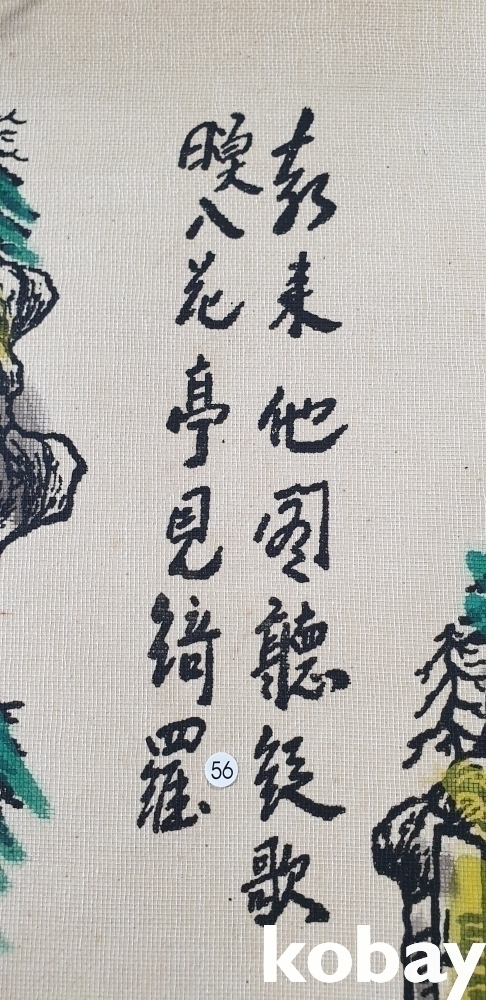 来他閣聽絃歌
入花亭見綺羅
56
kobay